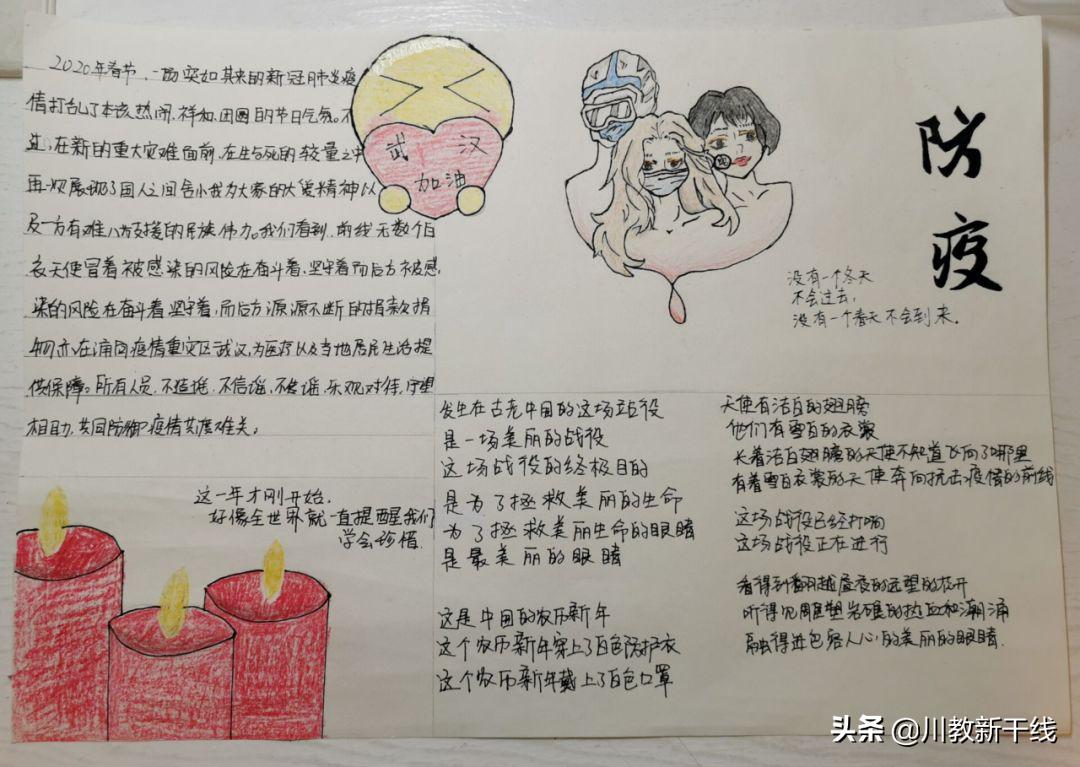 2020年春节，一场突如其来的新冠肺炎疫
情打乱了本该热闹、祥和、团圆的节日气氛。不
过，在新的重大灾难面前，在生与死的较量之中
再一次展现了国人之间舍小我为大家的大爱精神以
及一方有难八方支援的民族伟力。我们看到，前线无数个白
衣天使冒着被感染的风险在奋斗着，坚守着而后方被感
染的风险在奋斗着坚守着，而后方源源不断的捐款捐
物亦在涌向疫情重灾区武汉，为医疗以及当地居民生活提
供保障。所有人员，不造谣，不信谣，不传谣，乐观对待，守望
相助，共同防御疫情共度难关。
武 汉
加油
防
疫
没有一个冬天
不会过去，
没有一个春天不会到来。
这一年才刚开始，
好像全世界就一直提醒我们
学会珍惜
发生在古老中国的这场战役
是一场美丽的战役
这场战役的终极目的
是为了拯救美丽的生命
为了拯救美丽生命的眼睛
是最美丽的眼睛
这是中国的农历新年
这个农历新年穿上了白色防护衣
这个农历新年戴上了白色口罩
天使有洁白的翅膀
他们有雪白的衣裳
长着洁白翅膀的天使不知道飞向了哪里
有着雪白衣裳的天使奔向抗击疫情的前线
这场战役已经打响
这场战役正在进行
看得到翻越
听得见雕塑岩礁的热血和潮涌
融得进包容人心的美丽的眼睛
头条 @川教新干线